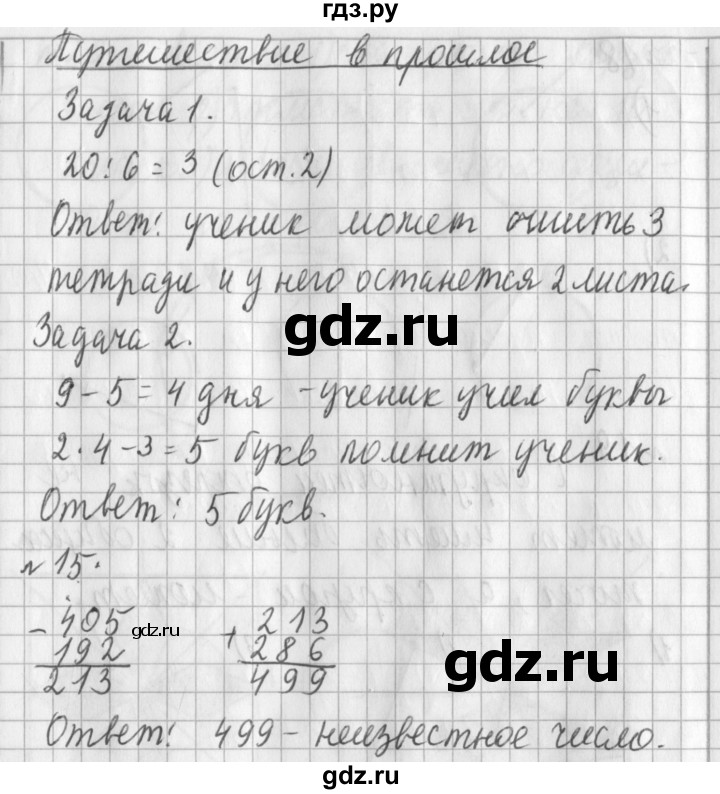 гдз.ру
Путешествие в прошлое
Задача 1.
20 : 6 = 3 (ост. 2)
Ответ: ученик может сшить 3
тетради и у него останется 2 листа.
gdz.ru
Задача 2.
9 - 5 = 4 дня - ученик учил буквы
2 · 4 - 3 = 5 букв помнит ученик.
Ответ: 5 букв.
№ 15.
- 405 + 213
192 286
213 499
gdz.ru
gdz.ru
Ответ: 499 - неизвестное число.
gdz.ru